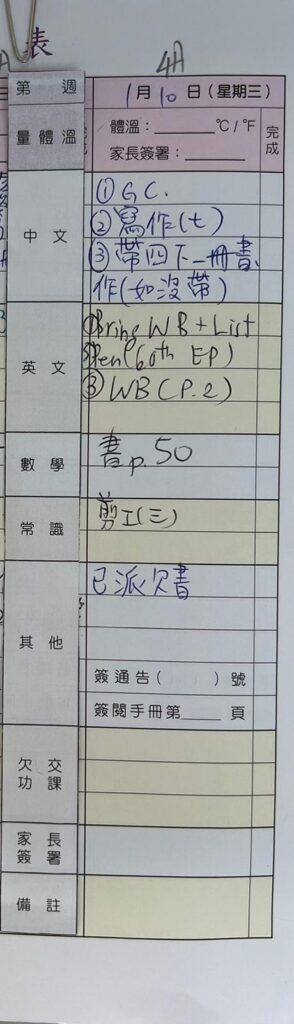 表
4A
第 週
1月10日(星期三)
量體溫
體溫：______ °C / °F
家長簽署：______
完成
中 文
① G.C.
② 寫作(七)
③ 帶四下一冊書、
作(如沒帶)
英 文
① Bring WB + List
Pen(both EP)
③ WB(P.2)
數 學
書p.50
常 識
剪工(三)
其 他
已派欠書
簽通告( )號
簽閱手冊第____頁
欠 交
功 課
家 長
簽 署
備 註